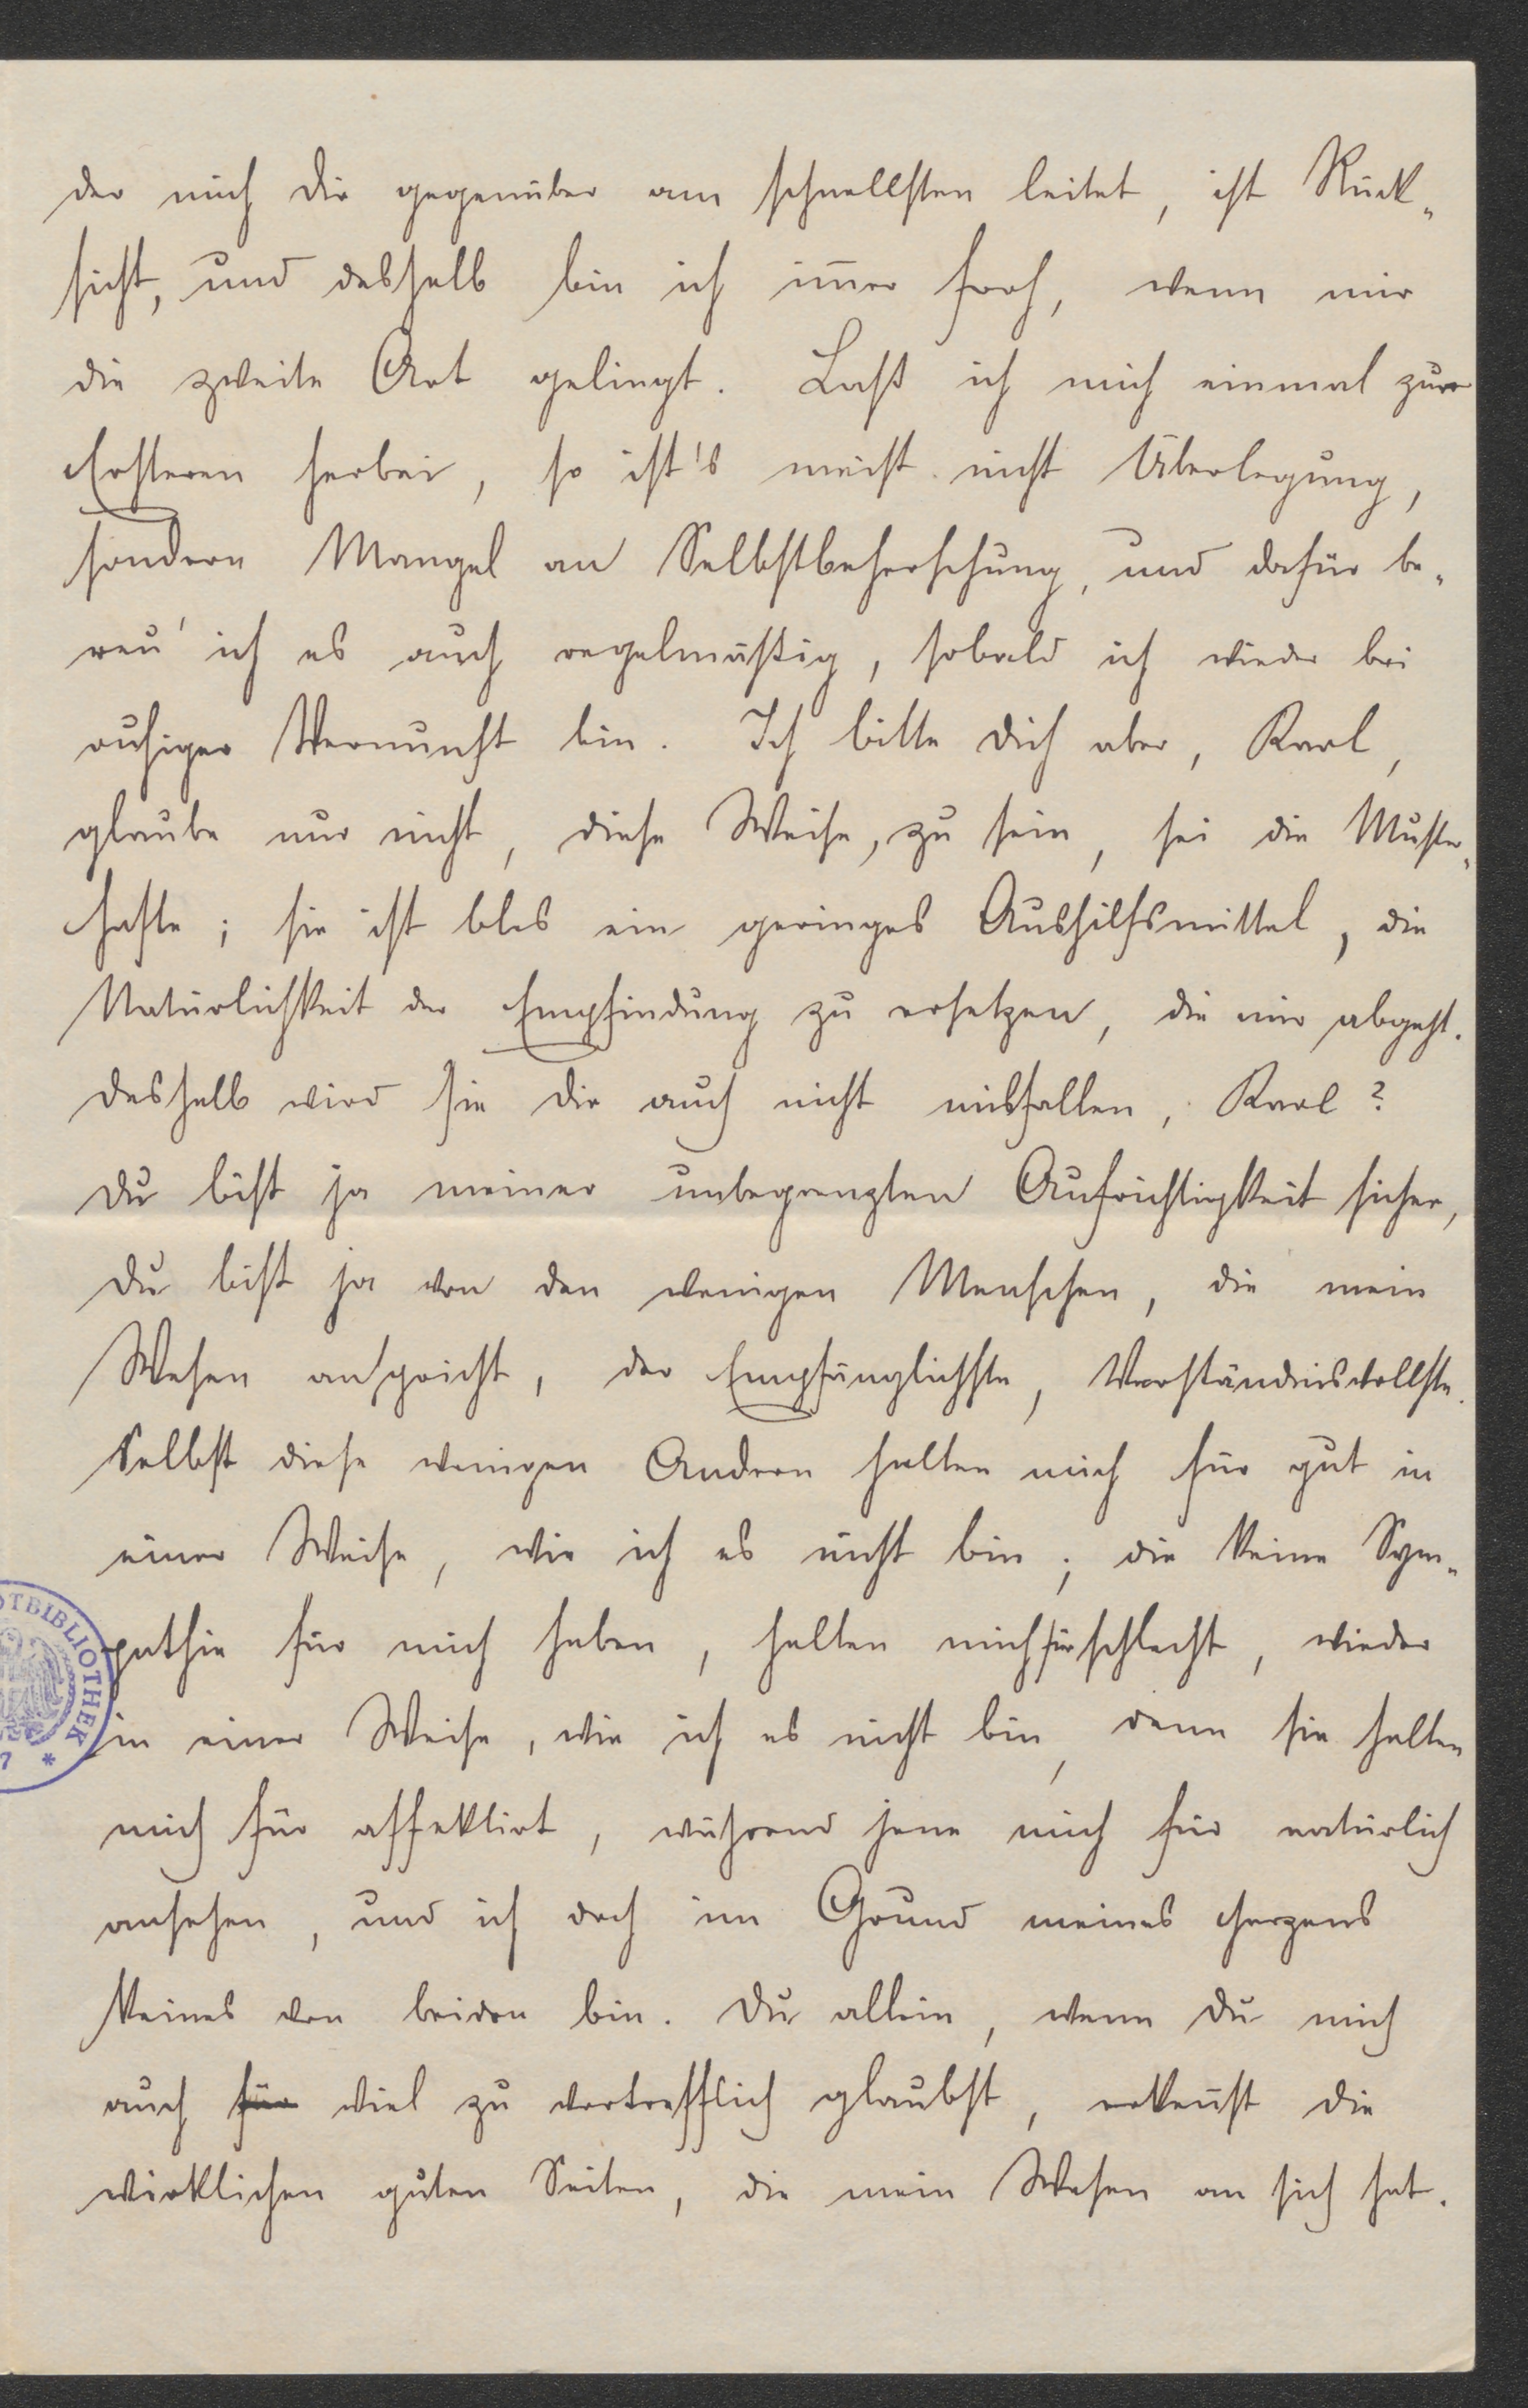 der mich Dir gegenüber am schnellsten leitet, ist Rück„
sicht, und deshalb bin ich im̄er froh, wenn mir
die zweite Art gelingt. Laß ich mich einmal zur
Ersteren herbei, so ist's meist nicht Überlegung,
sondern Mangel an Selbstbeherschung, und dafür be„
reu' ich es auch regelmäßig, sobald ich wieder bei
ruhiger Vernunft bin. Ich bitte Dich aber, Karl,
glaube nur nicht, diese Weise, zu sein, sei die Muster„
hafte; sie ist blos ein geringes Aushilfsmittel, die
Natürlichkeit der Empfindung zu ersetzen, die mir abgeht.
Deshalb wird sie Dir auch nicht misfallen, Karl?
Du bist ja meiner unbegrenzten Aufrichtigkeit sicher,
Du bist ja von den wenigen Menschen, die mein
Wesen anspricht, der Empfänglichste, Verständnisvollste.
Selbst diese wenigen Andern halten mich für gut in
einer Weise, wie ich es nicht bin; die keine Sym„
pathie für mich haben, halten mich für schlecht, wieder
in einer Weise, wie ich es nicht bin, denn sie halten
mich für affektirt, während jene mich für natürlich
ansehen, und ich doch im Grund meines Herzens
keines von beiden bin. Du allein, wenn Du mich
auch für viel zu vortrefflich glaubst, erken̄st die
wirklichen guten Seiten, die mein Wesen an sich hat.
OTBIBLIOTHEK